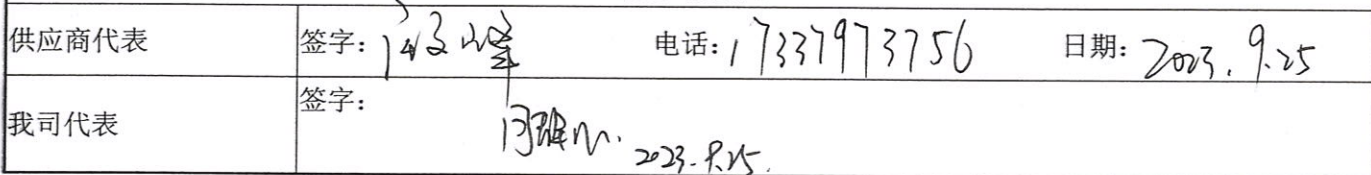 供应商代表 签字： 电话：17337973756 日期：2023.9.25
我司代表 签字：
2023.9.25.